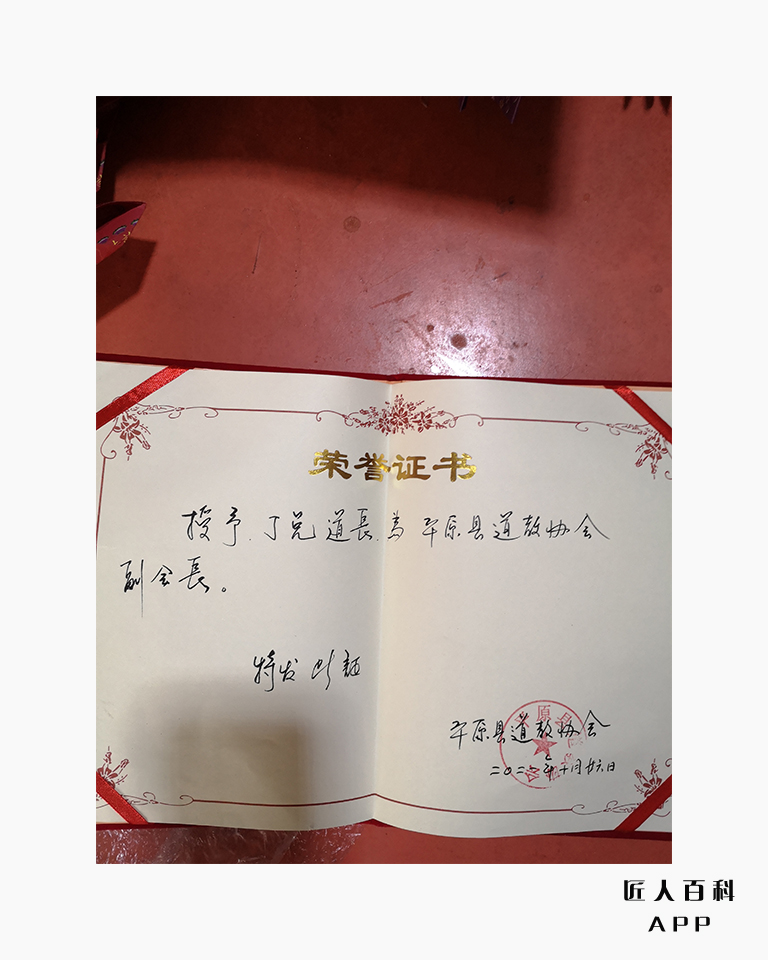 荣誉证书
授予丁兑道長為平原县道教协会
副会長。
特发此証
平原县道教协会
十月廿六日
匠人百科
APP